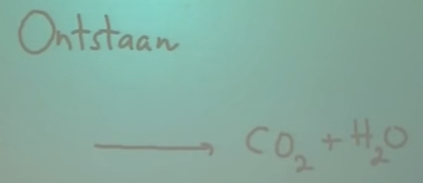 Ontstaan
⟶ CO₂ + H₂O